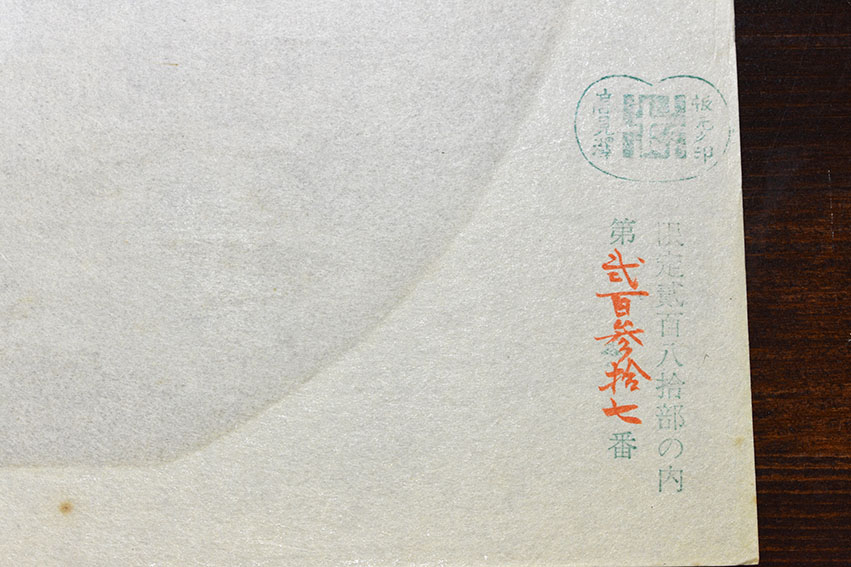 板元之印
高見澤
限定貳百八拾部の内
第弐百参拾七番